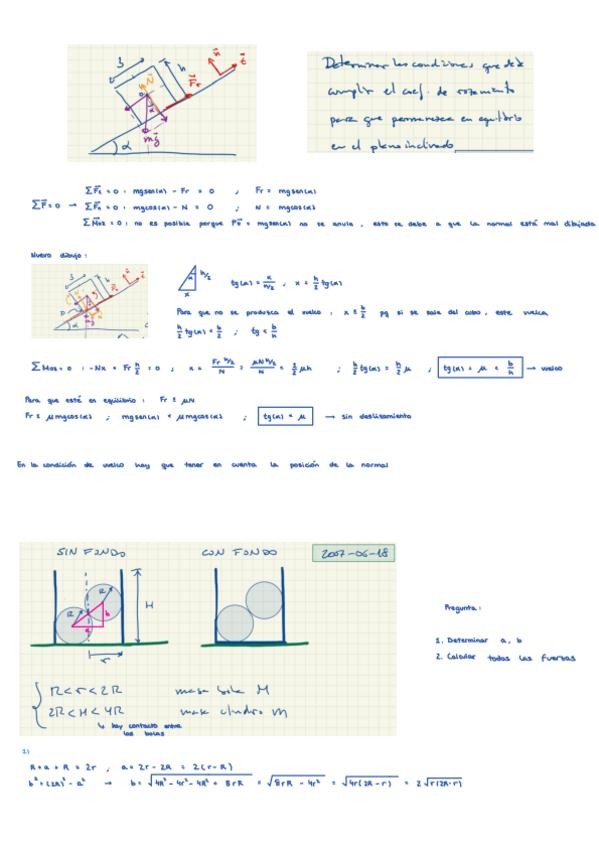 Determinar las condiciones que debe
cumplir el coef. de rozamiento
para que permanezca en equilibrio
en el plano inclinado
b
h
N
Fr
n
t
mg
α
ΣF=0 → ΣFt = 0 : mgsen(α) - Fr = 0 ; Fr = mgsen(α)
ΣFn = 0 : mgcos(α) - N = 0 ; N = mgcos(α)
ΣMoz = 0 : no es posible porque Pt = mgsen(α) no se anula, esto se debe a que la normal está mal dibujada
Nuevo dibujo :
α
x
h/2
tg(α) = x/h/2 ; x = h/2 tg(α)
Para que no se produzca el vuelco : x ≤ b/2 pq si se sale del cubo, este vuelca
h/2 tg(α) = b/2 ; tg < b/h
ΣMoz = 0 : -Nx + Fr h/2 = 0 ; x = Fr h/2 / N = μN h/2 / N = 1/2 μh ; h/2 tg(α) = h/2 μ ; tg(α) = μ < b/h → vuelco
Para que esté en equilibrio : Fr ≤ μN
Fr ≤ μmgcos(α) ; mgsen(α) < μmgcos(α) ; tg(α) < μ → sin deslizamiento
En la condición de vuelco hay que tener en cuenta la posición de la normal
SIN FONDO
CON FONDO
2007-06-18
R
R
b
a
H
r
Pregunta :
1. Determinar a, b
2. Calcular todas las fuerzas
R < r < 2R masa bola M
2R < H < 4R masa cilindro m
↳ hay contacto entre
las bolas
1)
R + a + R = 2r ; a = 2r - 2R = 2(r-R)
b² = (2R)² - a² → b = √4R² - 4r² - 4R² + 8rR = √8rR - 4r² = √4r(2R-r) = 2√r(2R-r)